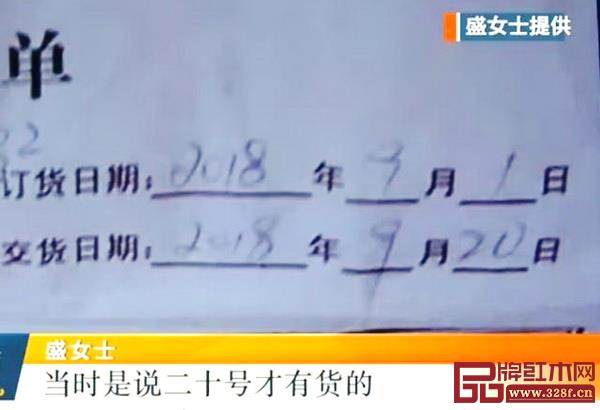 盛女士提供
单
02
订货日期：2018年9月1日
交货日期：2018年9月20日
盛女士
当时是说二十号才有货的
品牌红木网
www.328f.cn